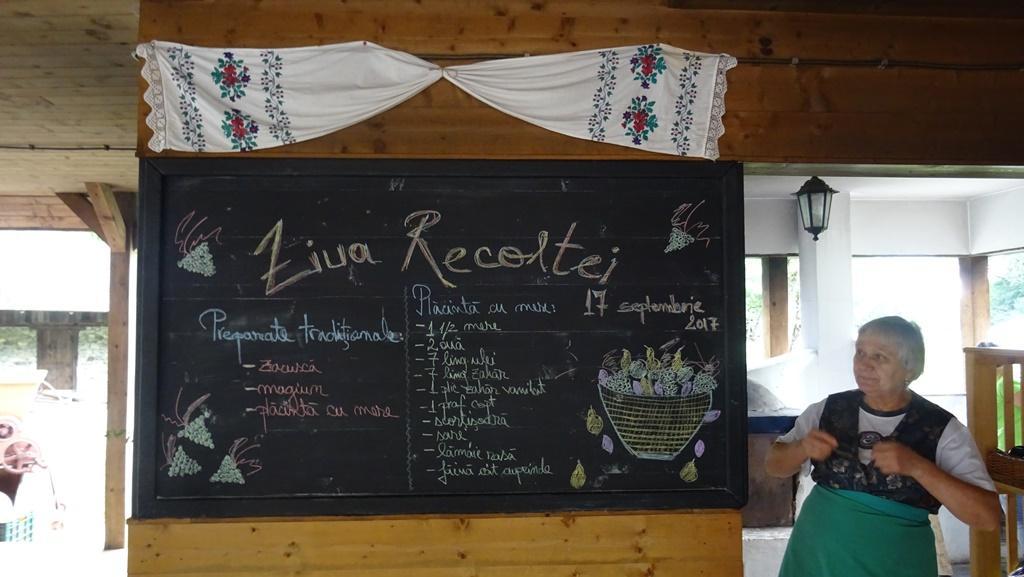 Ziua Recoltei
17 septembrie
2017
Preparate tradiționale:
- zacuscă
- magiun
- plăcintă cu mere
Plăcintă cu mere:
- 1 1/2 mere
- 2 ouă
- 7 ling ulei
- 7 ling zahăr
- 1 plic zahăr vanilat
- 1 praf copt
- scorțișoară
- sare
- lămâie rasă
- făină cât cuprinde